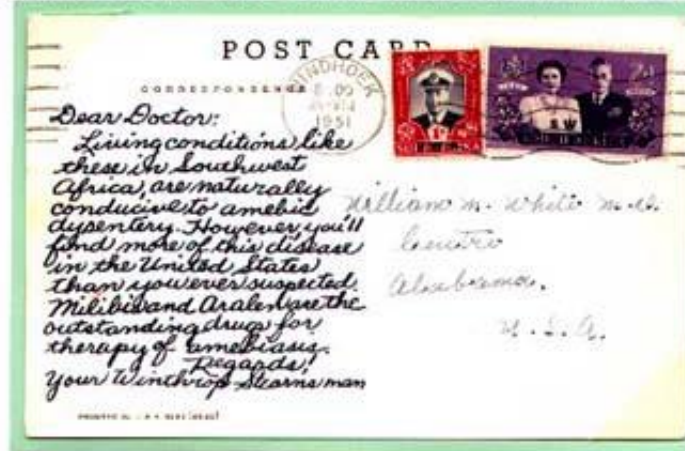 POST CARD
CORRESPONDENCE
WINDHOEK
1951
Dear Doctor:
Living conditions like
these in Southwest
Africa, are naturally
conducive to amebic
dysentery. However, you'll
find more of this disease
in the United States
than you ever suspected.
Milibis and Aralen are the
outstanding drugs for
therapy of amebiasis.
Regards,
Your Winthrop-Stearns man
William M. White M.D.
Alabama.
U.S.A.